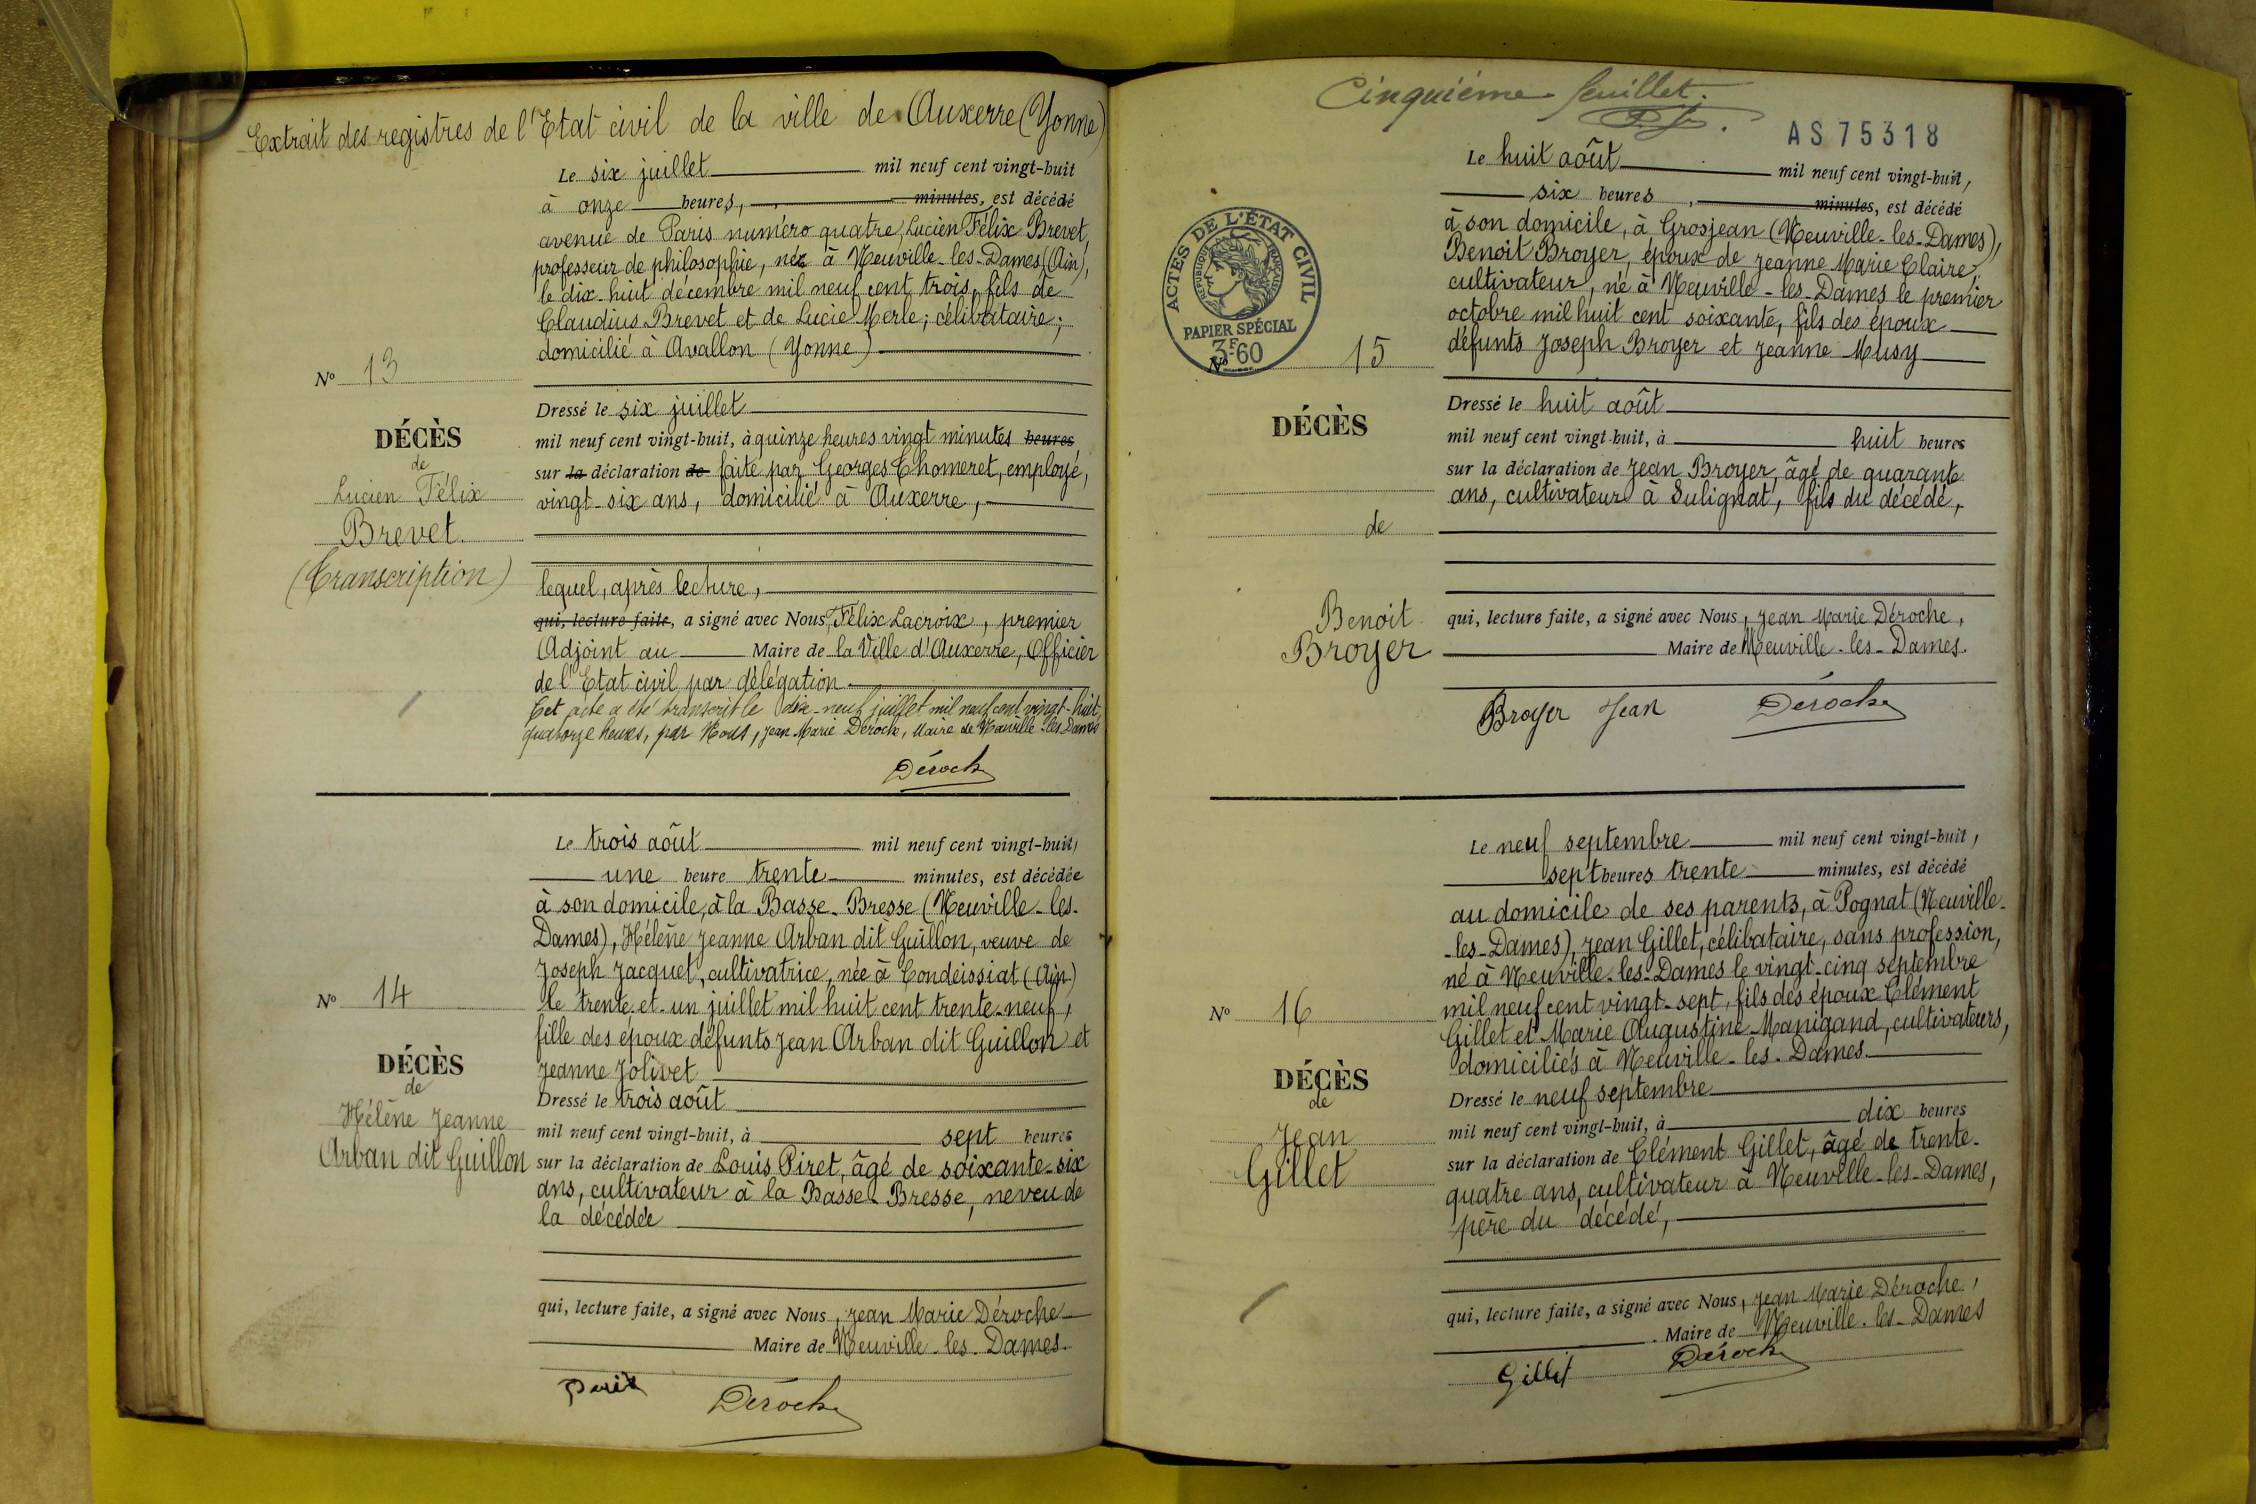 Extrait des registres de l'Etat civil de la ville de Auxerre (Yonne)
Le six juillet mil neuf cent vingt-huit
à onze heures, minutes, est décédé
avenue de Paris numéro quatre, Lucien Félix Brevet,
professeur de philosophie, né à Neuville-les-Dames (Ain),
le dix-huit décembre mil neuf cent trois, fils de
Claudius Brevet et de Lucie Merle; célibataire;
domicilié à Avallon (Yonne)
No 13
DÉCÈS
de
Lucien Félix
Brevet.
(Transcription)
Dressé le six juillet
mil neuf cent vingt-huit, à quinze heures vingt minutes heures
sur la déclaration de faite par Georges Thomeret, employé,
vingt-six ans, domicilié à Auxerre,
lequel, après lecture,
qui, lecture faite, a signé avec Nous, Félix Lacroix, premier
Adjoint au Maire de la Ville d'Auxerre, Officier
de l'Etat civil par délégation
Cet acte a été transcrit le dix-neuf juillet mil neuf cent vingt-huit
quatorze heures, par Nous, Jean Marie Déroche, Maire de Neuville-les-Dames
Déroche
Le trois août mil neuf cent vingt-huit,
une heure trente minutes, est décédée
à son domicile, à la Basse-Bresse (Neuville-les-
Dames), Hélène Jeanne Arban dit Guillon, veuve de
Joseph Jacquet, cultivatrice, née à Condeissiat (Ain)
le trente-et-un juillet mil huit cent trente-neuf,
fille des époux défunts Jean Arban dit Guillon et
Jeanne Jolivet
No 14
DÉCÈS
de
Hélène Jeanne
Arban dit Guillon
Dressé le trois août
mil neuf cent vingt-huit, à sept heures
sur la déclaration de Louis Piret, âgé de soixante-six
ans, cultivateur à la Basse-Bresse, neveu de
la décédée
qui, lecture faite, a signé avec Nous, Jean Marie Déroche
Maire de Neuville-les-Dames.
Déroche
Cinquième feuillet.
AS 75318
ACTES DE L'ÉTAT CIVIL
RÉPUBLIQUE FRANÇAISE
PAPIER SPÉCIAL
3F60
Le huit août mil neuf cent vingt-huit,
six heures, minutes, est décédé
à son domicile, à Grosjean (Neuville-les-Dames),
Benoit Broyer, époux de Jeanne Marie Claire,
cultivateur, né à Neuville-les-Dames le premier
octobre mil huit cent soixante, fils des époux
défunts Joseph Broyer et Jeanne Musy
No 15
DÉCÈS
de
Benoit
Broyer
Dressé le huit août
mil neuf cent vingt-huit, à huit heures
sur la déclaration de Jean Broyer, âgé de quarante
ans, cultivateur à Sulignat, fils du décédé,
qui, lecture faite, a signé avec Nous, Jean Marie Déroche,
Maire de Neuville-les-Dames.
Broyer Jean Déroche
Le neuf septembre mil neuf cent vingt-huit,
sept heures trente minutes, est décédé
au domicile de ses parents, à Pognat (Neuville-
-les-Dames), Jean Gillet, célibataire, sans profession,
né à Neuville-les-Dames le vingt-cinq septembre
mil neuf cent vingt-sept, fils des époux Clément
Gillet et Marie Augustine Manigand, cultivateurs,
domiciliés à Neuville-les-Dames.
No 16
DÉCÈS
de
Jean
Gillet
Dressé le neuf septembre
mil neuf cent vingt-huit, à dix heures
sur la déclaration de Clément Gillet, âgé de trente-
quatre ans, cultivateur à Neuville-les-Dames,
père du décédé,
qui, lecture faite, a signé avec Nous, Jean Marie Déroche,
Maire de Neuville-les-Dames
Gillet Déroche